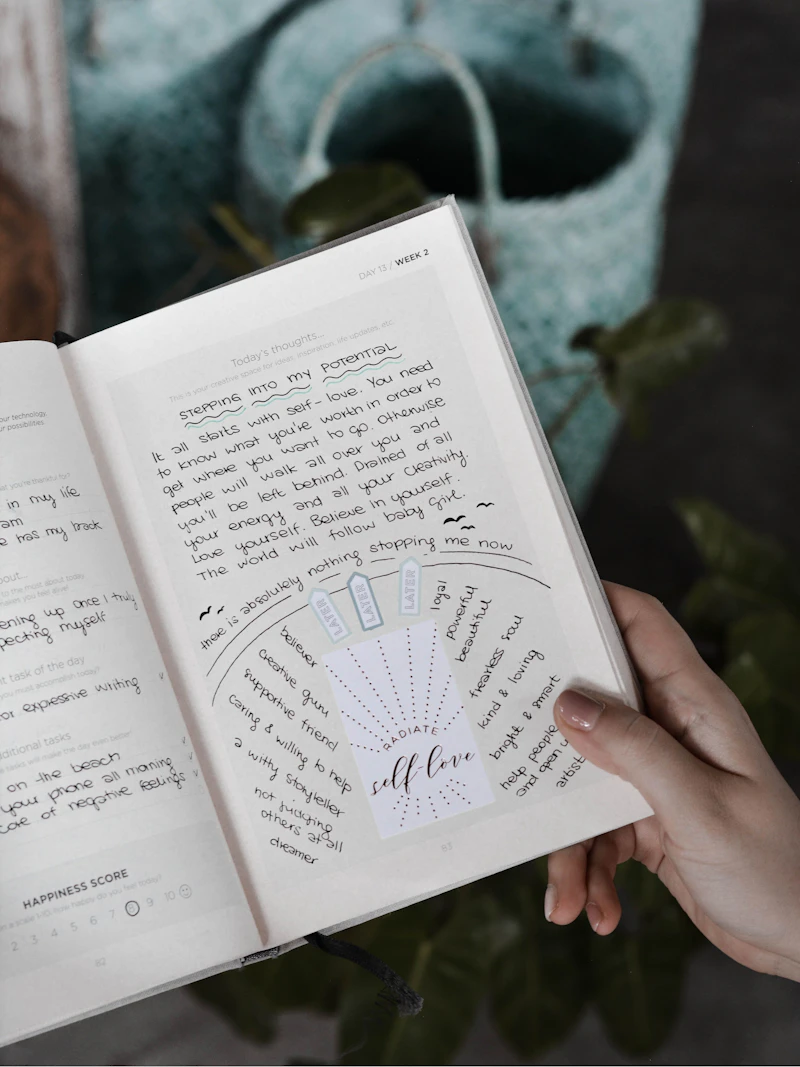 our technology.
ur possibilities.
what you're thankful for?
in my life
am
e has my back
bout...
to the most about today
makes you feel alive!
ening up once I truly
pecting myself
t task of the day
you must accomplish today?
or expressive writing
dditional tasks
tasks will make the day even better!
on the beach
your phone all morning
care of negative feelings
HAPPINESS SCORE
how happy did you feel today?
2 3 4 5 6 7 8 9 10
DAY 13 / WEEK 2
Today's thoughts...
This is your creative space for ideas, inspiration, life updates, etc
STEPPING INTO MY POTENTIAL
It all starts with self-love. You need
to know what you're worth in order to
get where you want to go. Otherwise
people will walk all over you and
you'll be left behind. Drained of all
your energy and all your creativity.
Love yourself. Believe in yourself.
The world will follow baby girl.
there is absolutely nothing stopping me now
LATER
LATER
LATER
believer
creative guru
supportive friend
caring & willing to help
a witty storyteller
not judging
others at all
dreamer
RADIATE
self-love
loyal
powerful
beautiful
fearless soul
kind & loving
bright & smart
help people
and open
artist